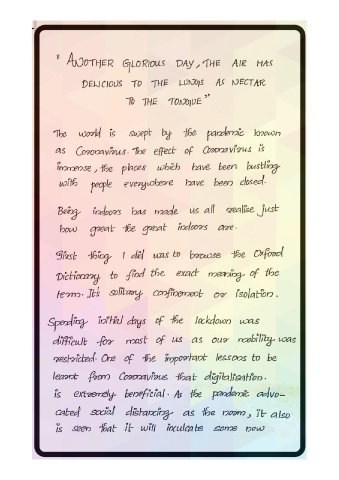 " ANOTHER GLORIOUS DAY, THE AIR HAS
DELICIOUS TO THE LUNGS AS NECTAR
TO THE TONGUE"
The world is swept by the pandemic known
as Coronavirus. The effect of Coronavirus is
immense, the places which have been bustling
with people everywhere have been closed.
Being indoors has made us all realise just
how great the great indoors are.
First thing I did was to browse the Oxford
Dictionary to find the exact meaning of the
term. It's solitary confinement or isolation.
Spending initial days of the lockdown was
difficult for most of us as our mobility was
restricted. One of the important lessons to be
learnt from Coronavirus that digitalisation.
is extremely beneficial. As the pandemic advo-
cated social distancing as the norm, it also
is seen that it will inculcate some new